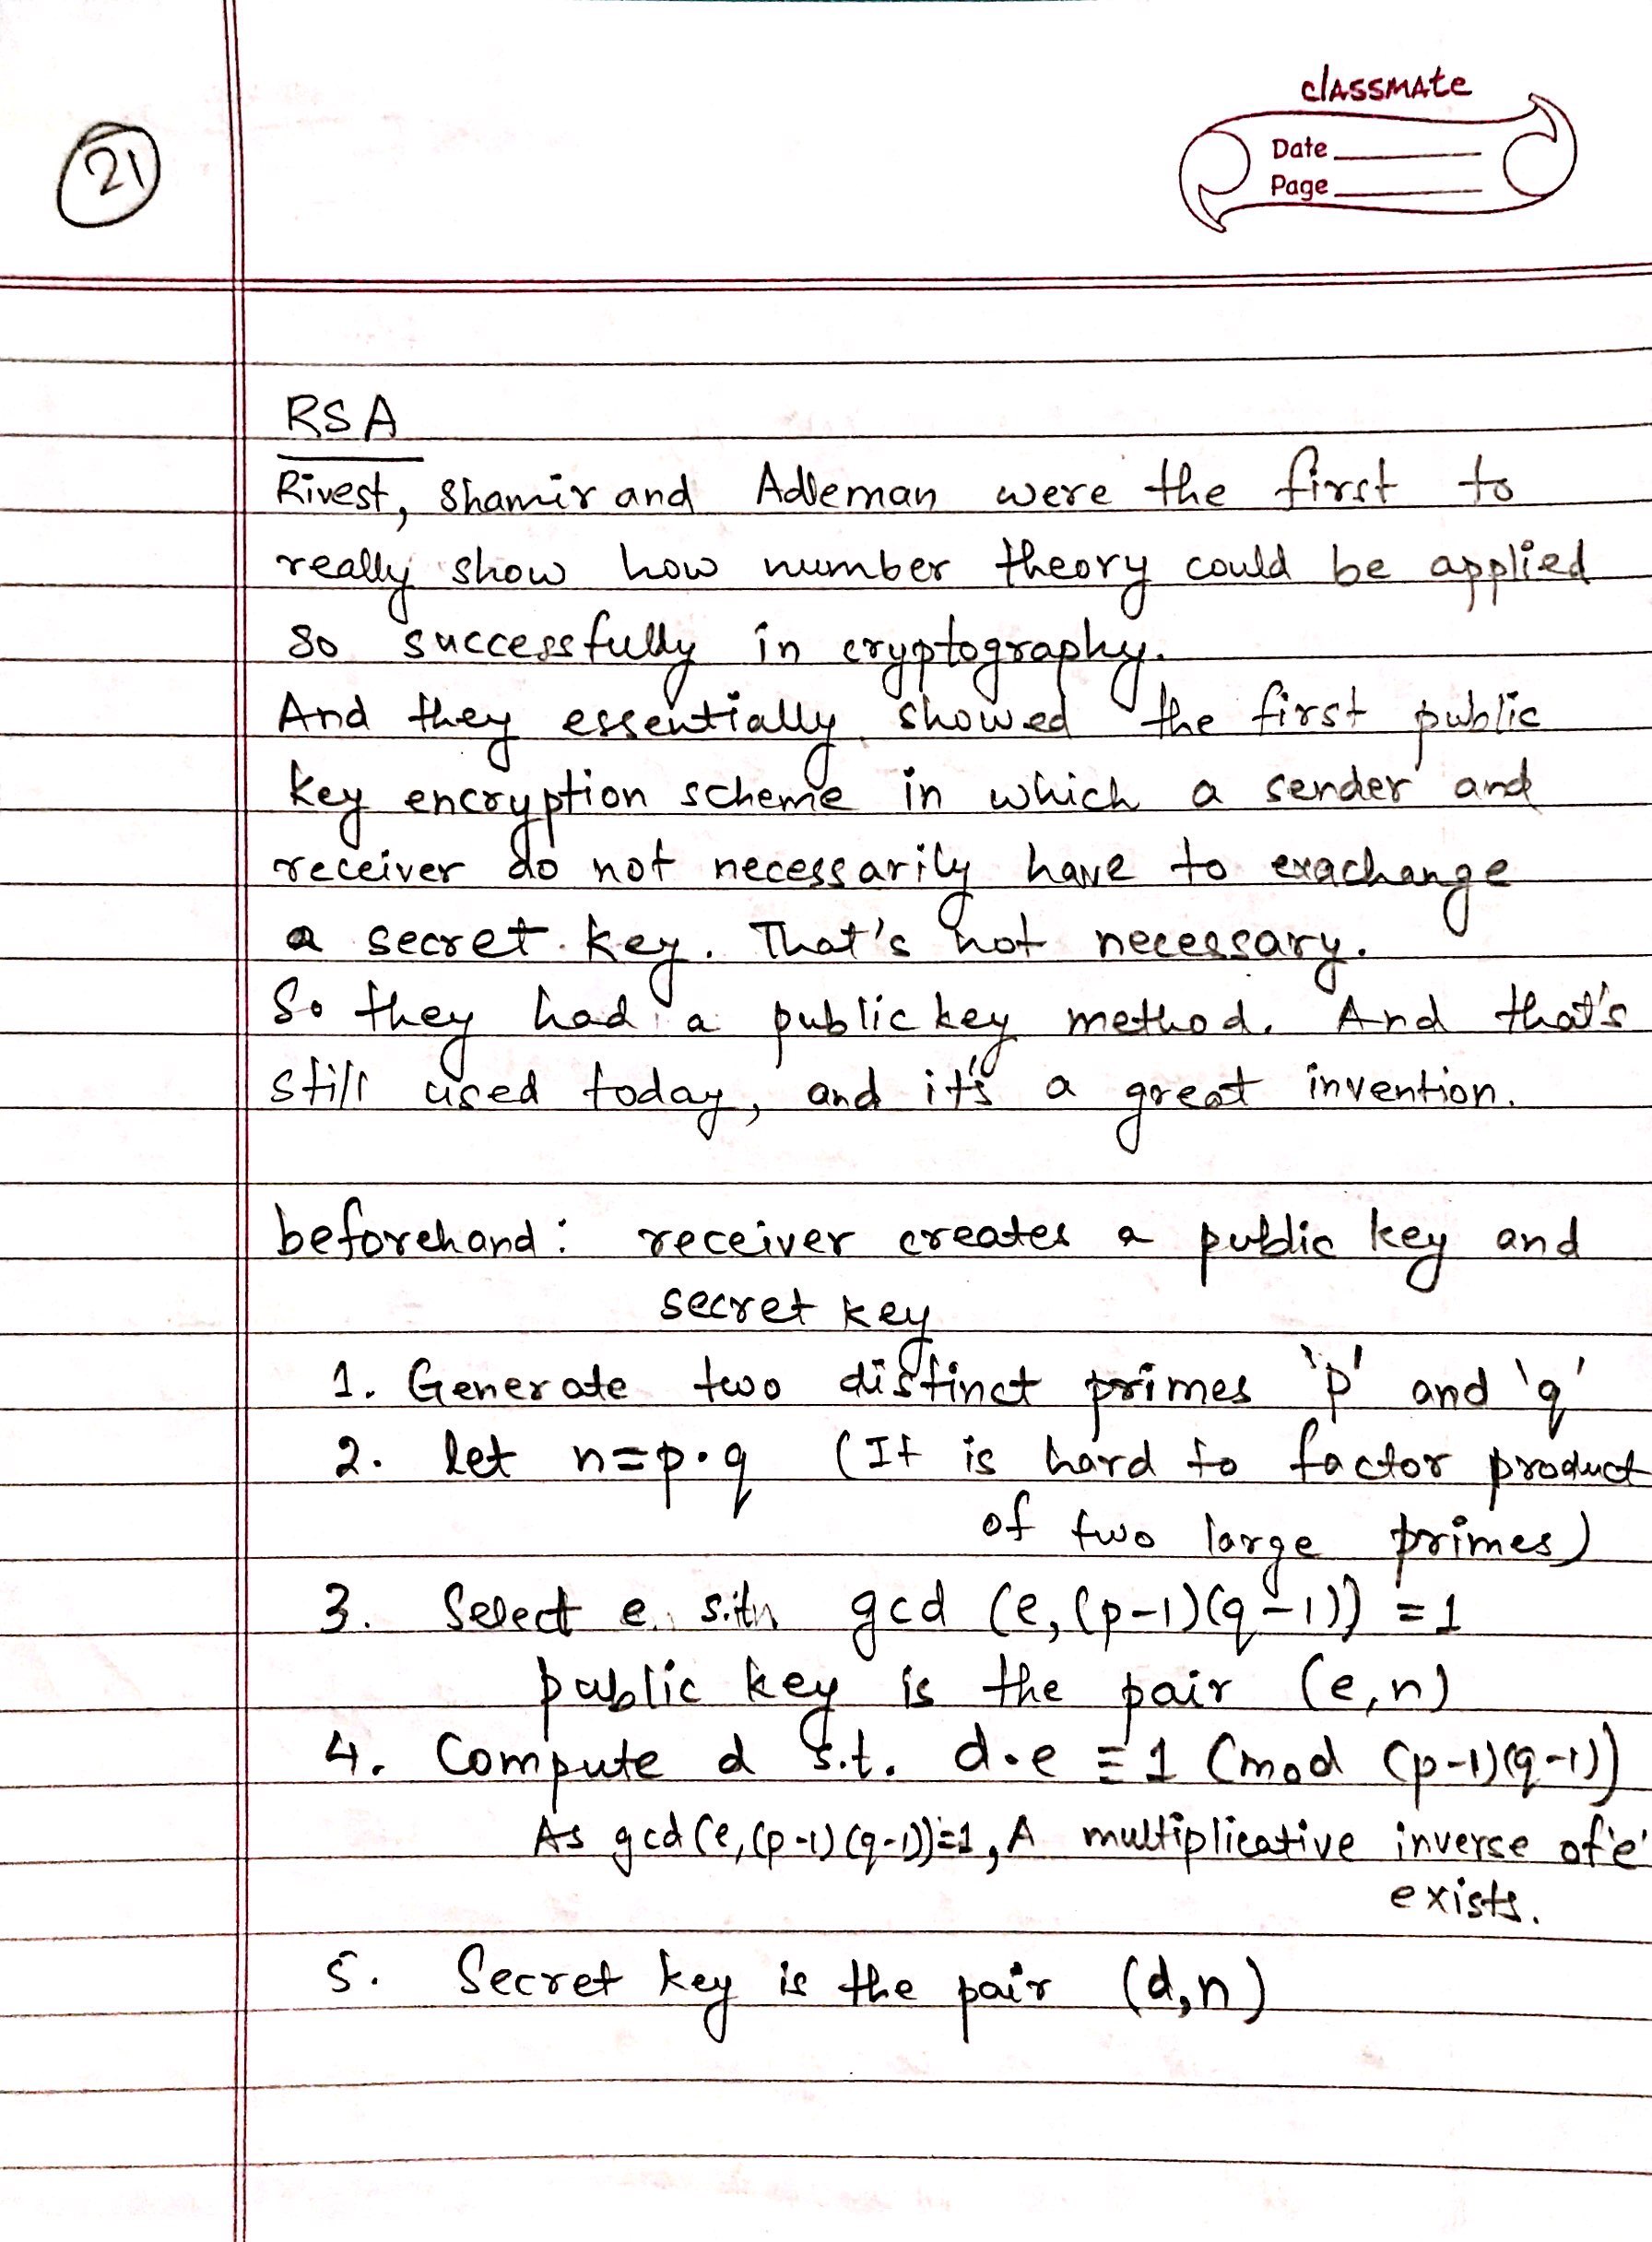 classmate
Date
Page
21
RSA
Rivest, Shamir and Adleman were the first to
really show how number theory could be applied
so successfully in cryptography.
And they essentially showed the first public
key encryption scheme in which a sender and
receiver do not necessarily have to exachange
a secret key. That's not necessary.
So they had a public key method. And that's
still used today, and it's a great invention.
beforehand: receiver creates a public key and
secret key
1. Generate two distinct primes 'p' and 'q'
2. let n=p·q (It is hard to factor product
of two large primes)
3. Select e s.t. gcd (e, (p-1)(q-1)) = 1
public key is the pair (e,n)
4. Compute d s.t. d·e ≡ 1 (mod (p-1)(q-1))
As gcd(e,(p-1)(q-1))=1, A multiplicative inverse of 'e'
exists.
5. Secret key is the pair (d,n)